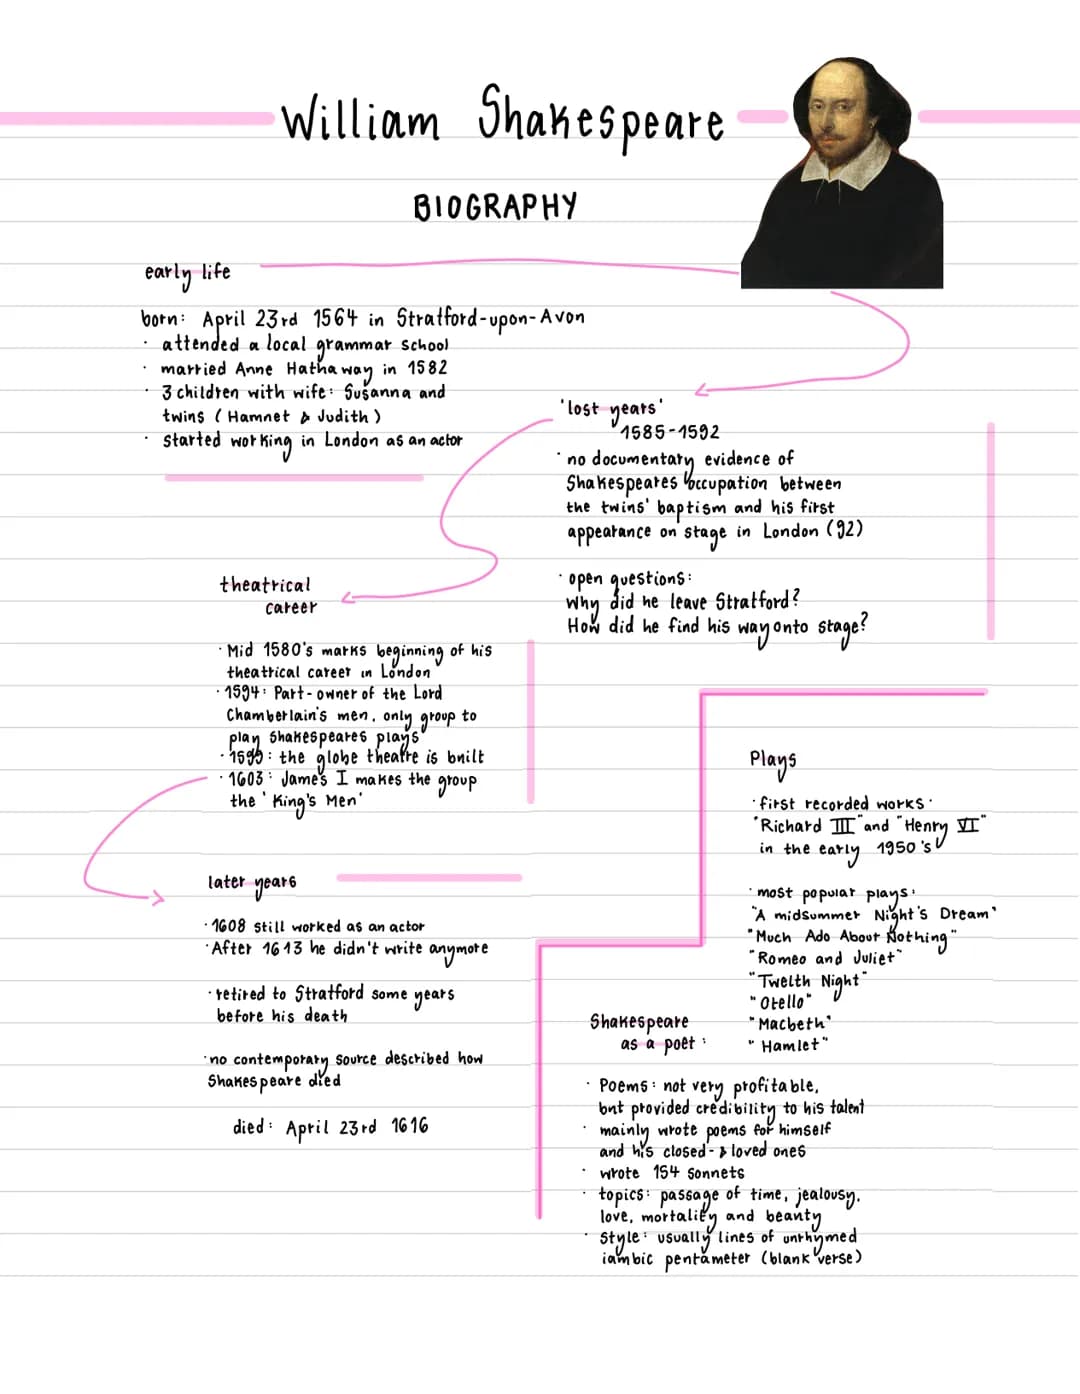 William Shakespeare
BIOGRAPHY
early life
born: April 23rd 1564 in Stratford-upon-Avon
· attended a local grammar school
· married Anne Hathaway in 1582
· 3 children with wife: Susanna and
twins (Hamnet & Judith)
· started working in London as an actor
'lost years'
1585-1592
· no documentary evidence of
Shakespeares occupation between
the twins' baptism and his first
appearance on stage in London (92)
· open questions:
Why did he leave Stratford?
How did he find his way onto stage?
theatrical
career
· Mid 1580's marks beginning of his
theatrical career in London
· 1594: Part-owner of the Lord
Chamberlain's men, only group to
play Shakespeares plays
· 1599: the globe theatre is built
· 1603: James I makes the group
the 'King's Men'
later years
· 1608 still worked as an actor
· After 1613 he didn't write anymore
· retired to Stratford some years
before his death
· no contemporary source described how
Shakespeare died
died: April 23rd 1616
Plays
· first recorded works:
"Richard III" and "Henry VI"
in the early 1950's
· most popular plays:
"A midsummer Night's Dream"
"Much Ado About Nothing"
"Romeo and Juliet"
"Twelth Night"
"Otello"
"Macbeth"
"Hamlet"
Shakespeare
as a poet:
· Poems: not very profitable,
but provided credibility to his talent
· mainly wrote poems for himself
and his closed- & loved ones
· wrote 154 sonnets
· topics: passage of time, jealousy,
love, mortality and beauty
· Style: usually lines of unrhymed
iambic pentameter (blank verse)